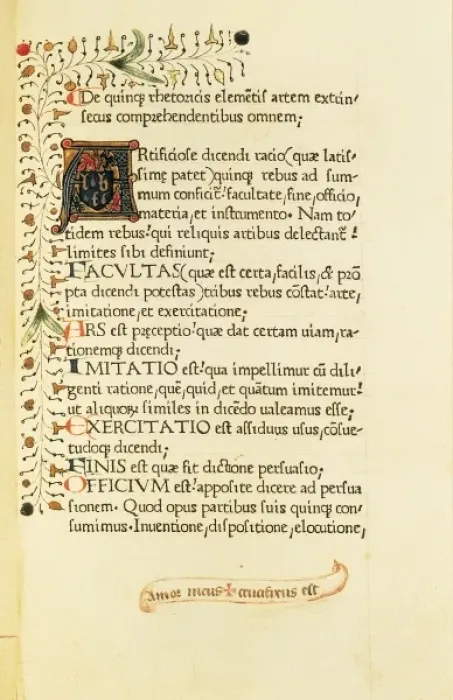 De quinq; rhetoricis elemētis artem extrin/
secus comprehendentibus omnem;
ARtificiose dicendi racio(quæ latis/
simę patet)quinq; rebus ad sum/
mum conficit':facultate,fine,officio,
materia,et instrumento. Nam to/
tidem rebus:qui reliquis artibus delectant':
limites sibi definiunt;
FACVLTAS(quæ est certa,facilis,& prō
pta dicendi potestas)tribus rebus cōstat:arte,
imitatione,et exercitatione;
ARS est pręceptio:quæ dat certam uiam,ra/
tionemq; dicendi;
IMITATIO est:qua impellimur cū dili/
genti ratione,quē,quid,et quātum imitemur:
ut aliquoꝝ similes in dicēdo ualeamus esse;
EXERCITATIO est assiduus usus,cōsue/
tudoq; dicendi;
FINIS est quæ fit dictione persuasio;
OFFICIVM est:apposite dicere ad persua
sionem. Quod opus partibus suis quinq; con/
sumimus.Inuentione,dispositione,elocutione,
Amor meus ✝ crucifixus est